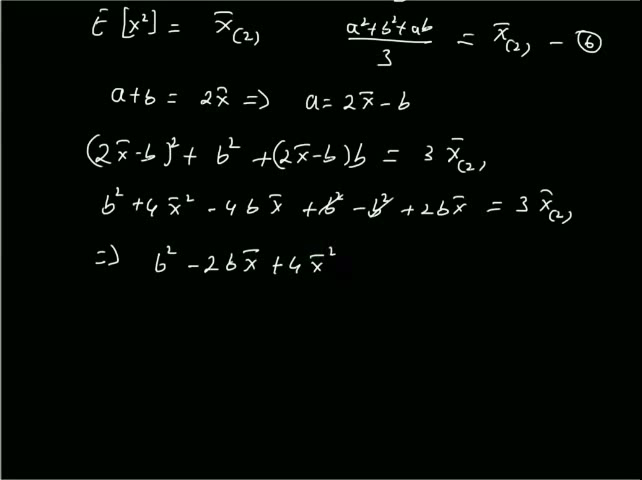 E [x²] = x̄₍₂₎   (a²+b²+ab)/3 = x̄₍₂₎ - ⑥
a+b = 2x̄ => a = 2x̄ - b
(2x̄-b)² + b² + (2x̄-b)b = 3 x̄₍₂₎
b² + 4x̄² - 4bx̄ + b² - b² + 2bx̄ = 3 x̄₍₂₎
=> b² - 2bx̄ + 4x̄²